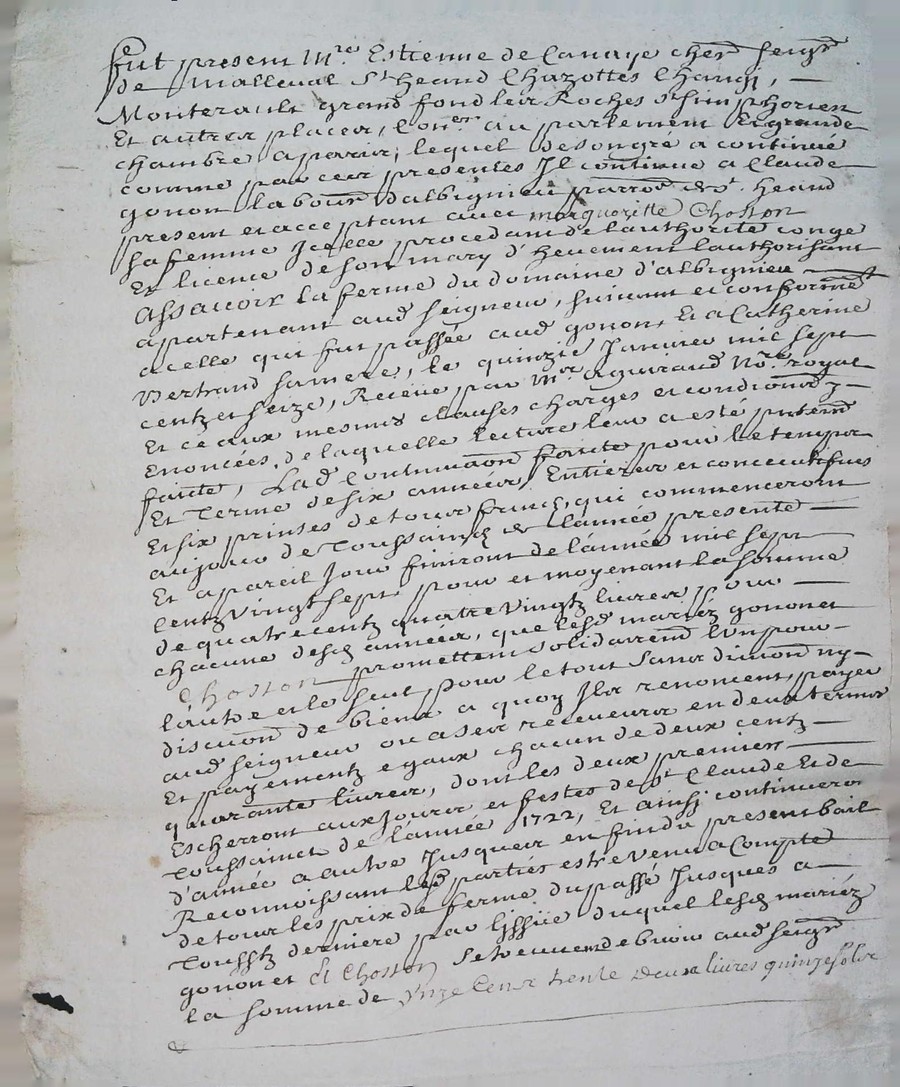 fut present Mre Estienne de Canaye cher seigr
de Malleval St heand Chazottes Changi,
Monterault grand fond les Roches St simphorien
Et autres places, Coner au parlement Et grande
chambre a paris, lequel de son gré a continué
comme par ces presentes Il continue a Claude
gonon labourr d'albignieu parroe de St heand
present et acceptant avec marguoritte Choston
sa femme Icelle procedant de l'authorité congé
Et licence de son mary d'huement l'authorisant
Assavoir la ferme du domaine d'albignieu
apartenant aud seigneur, suivant et conformét
a celle qui fut passée aud gonon, Et a Catherine
Bertrand sa mere, le quinzie Janvier mil sept
centz et seize, Receüe par Mre aguiraud Nore royal
Et ce aux mesmes clauses charges et condions y
Enoncées, de laquelle lecture leur a esté presenmt
faitte, Lad Continuaon faitte pour le temps
Et Terme de six années Entieres et concecutifves
Et six prinses de tous fruicz, qui commenceront
au jour de Toussainctz de L'année presente
Et a pareil Jour finiront de l'année mil sept
Centz vingt sept pour et moyenant la somme
de quatre centz quatre vingtz livres pour
chacune desd années, que lesd mariéz gonon et
Choston promettent solidairemt l'un pour
l'autre et le seul pour le tout sans divion ny
discuon de biens a quoy Ils renoncent, payer
aud seigneur ou a ses receveurs en deux termes
Et payementz egaux chacun de deux centz
quarante livres, dont les deux premiers
Escherront aux Jours et festes de St Claude Et de
Toussainct de l'année 1722, Et ainsi continueront
d'année a autre Jusques en fin du present bail
Reconnoissant lesd parties estre venus a Compte
de tous les prix de ferme du passé Jusques a
Toussts derniere par l'issüe duquel lesd mariéz
gonon et Et Choston se treuvent debvoir aud seigr
la somme de Unze Cens trente deux livres quinze solz